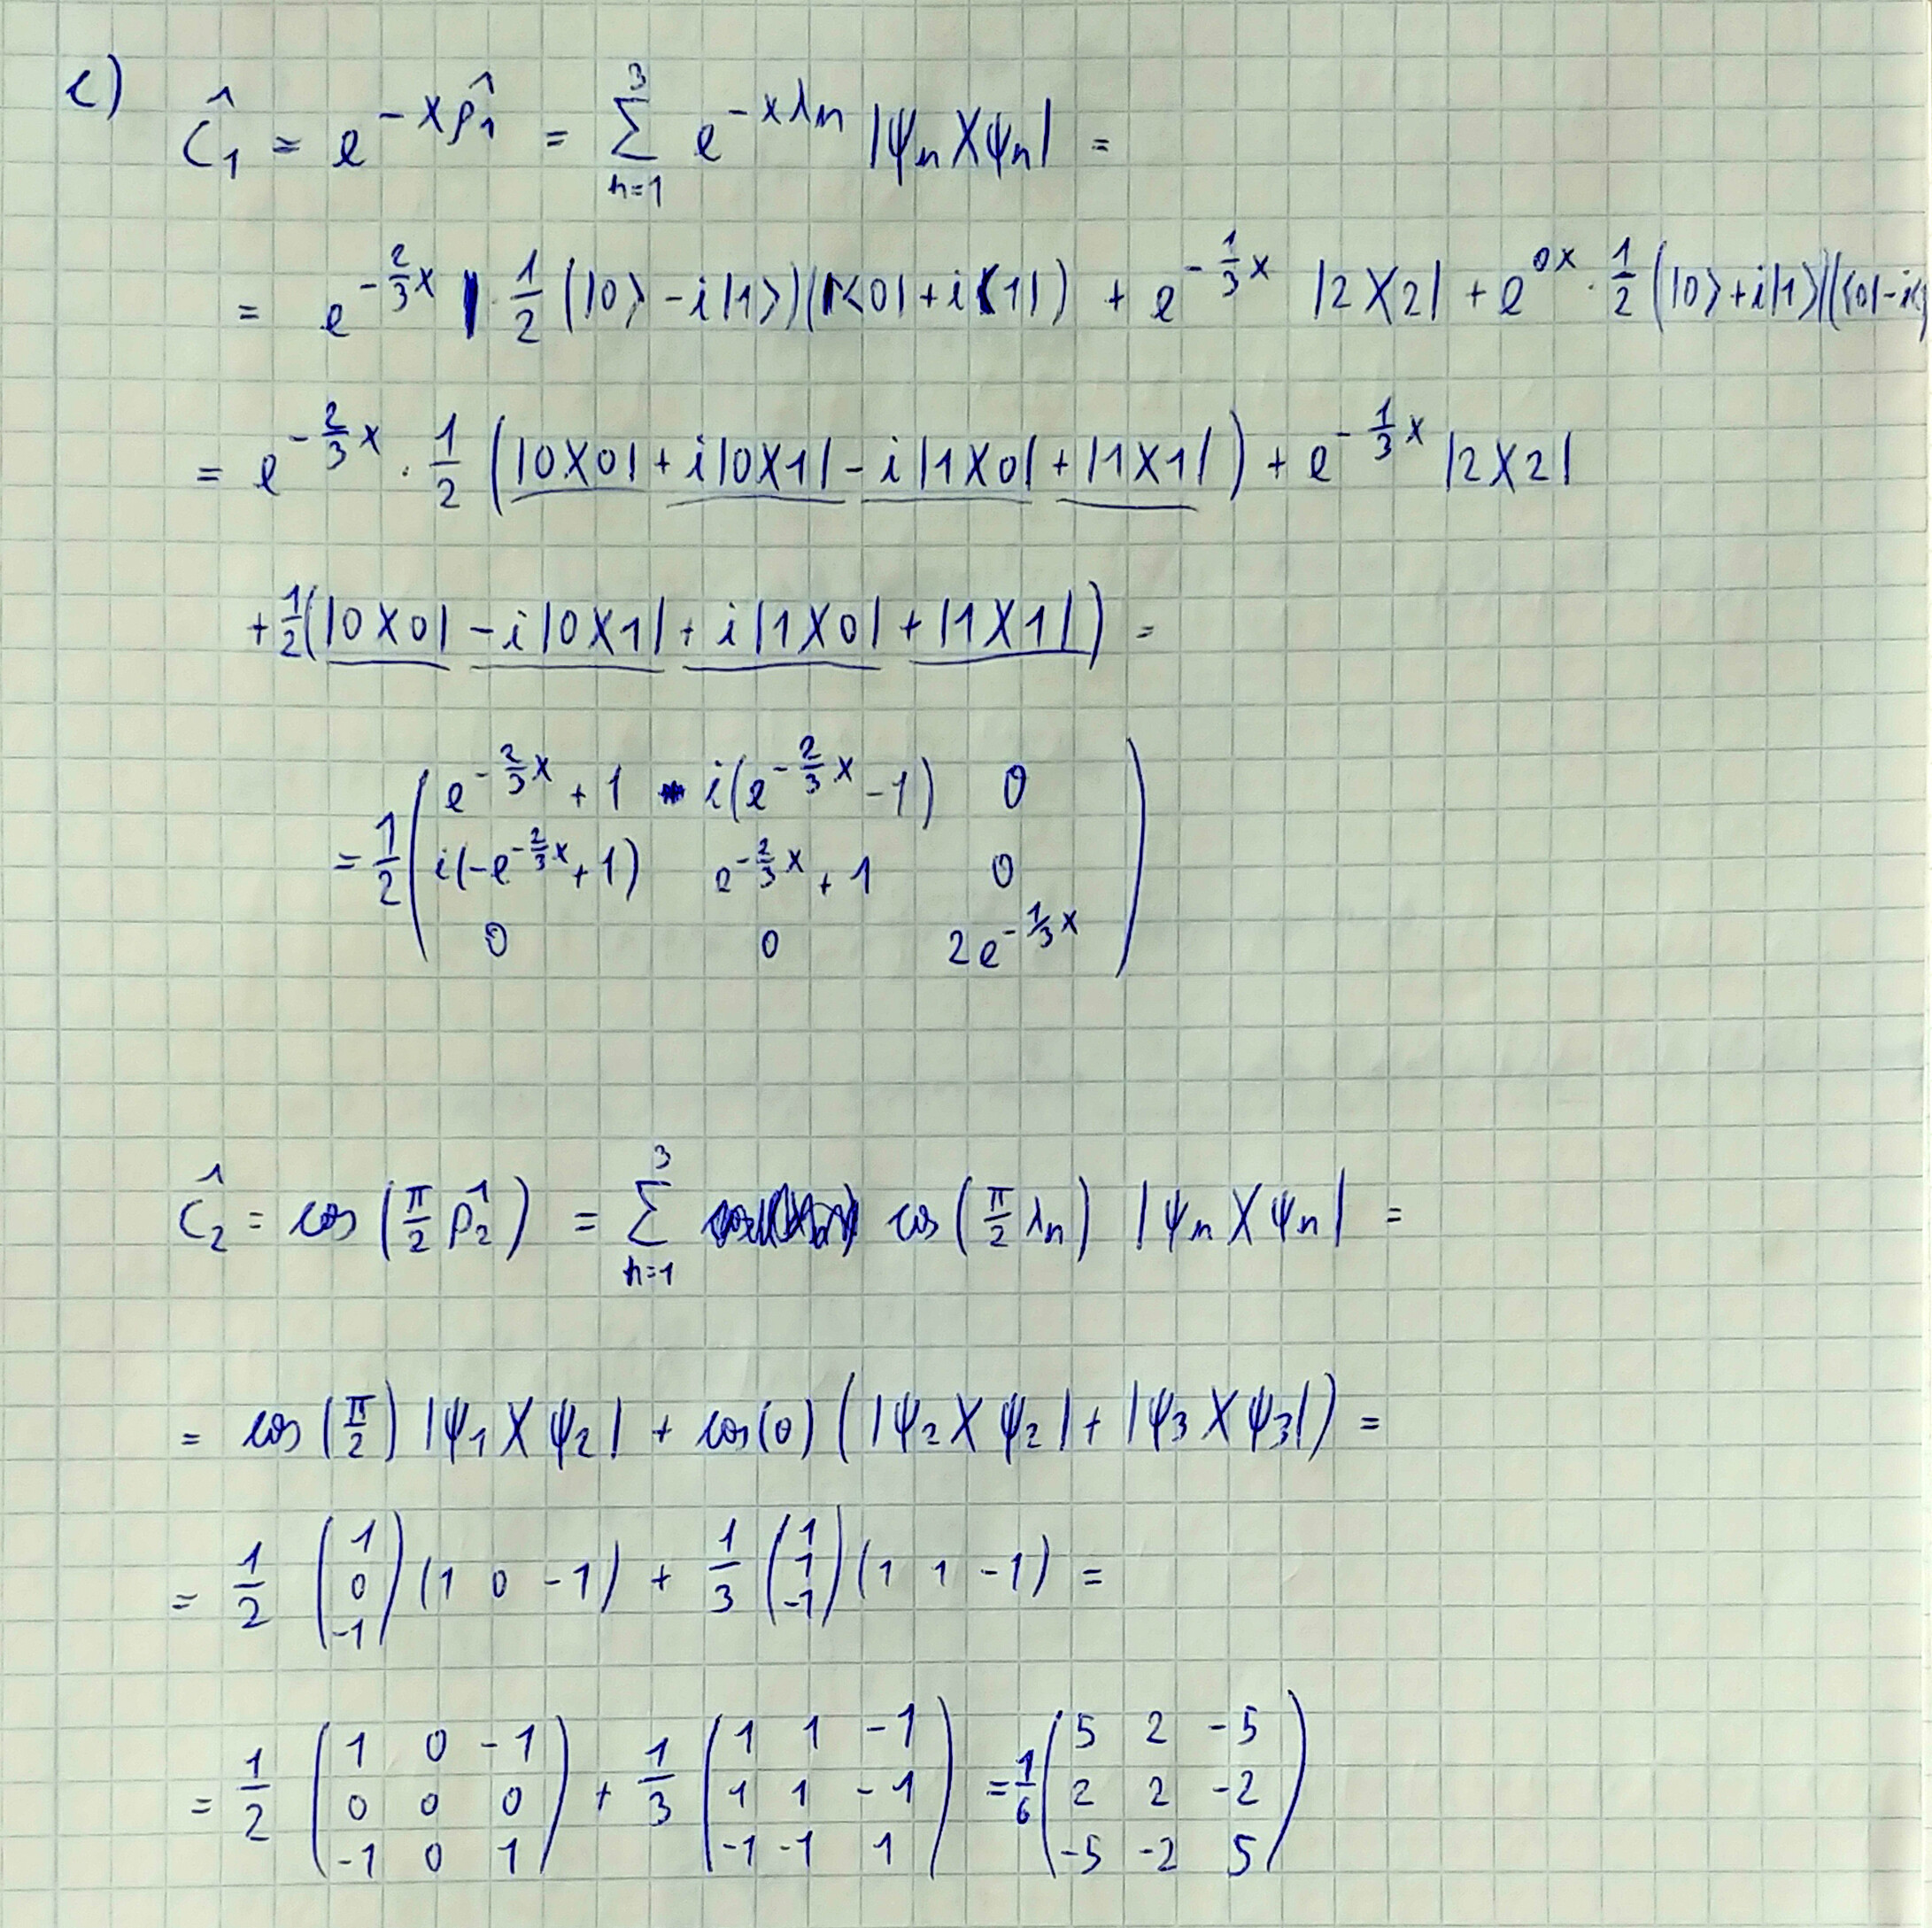 c) Ĉ₁ = e^(-xρ̂₁) = ∑_{n=1}^{3} e^(-xλₙ) |ψₙ⟩⟨ψₙ| =
= e^(-2/3 x) · 1/2 (|0⟩ - i|1⟩)(⟨0| + i⟨1|) + e^(-1/3 x) |2⟩⟨2| + e^(0x) · 1/2 (|0⟩ + i|1⟩)(⟨0| - i⟨
= e^(-2/3 x) · 1/2 (|0⟩⟨0| + i|0⟩⟨1| - i|1⟩⟨0| + |1⟩⟨1|) + e^(-1/3 x) |2⟩⟨2|
+ 1/2 (|0⟩⟨0| - i|0⟩⟨1| + i|1⟩⟨0| + |1⟩⟨1|) =
= 1/2 ( e^(-2/3 x) + 1   i(e^(-2/3 x) - 1)   0
i(-e^(-2/3 x) + 1)   e^(-2/3 x) + 1   0
0   0   2e^(-1/3 x) )
Ĉ₂ = cos(π/2 ρ̂₂) = ∑_{n=1}^{3} cos(π/2 λₙ) |ψₙ⟩⟨ψₙ| =
= cos(π/2) |ψ₁⟩⟨ψ₂| + cos(0) (|ψ₂⟩⟨ψ₂| + |ψ₃⟩⟨ψ₃|) =
= 1/2 (1 0 -1)ᵀ (1 0 -1) + 1/3 (1 1 -1)ᵀ (1 1 -1) =
= 1/2 ( 1 0 -1 ; 0 0 0 ; -1 0 1 ) + 1/3 ( 1 1 -1 ; 1 1 -1 ; -1 -1 1 ) = 1/6 ( 5 2 -5 ; 2 2 -2 ; -5 -2 5 )